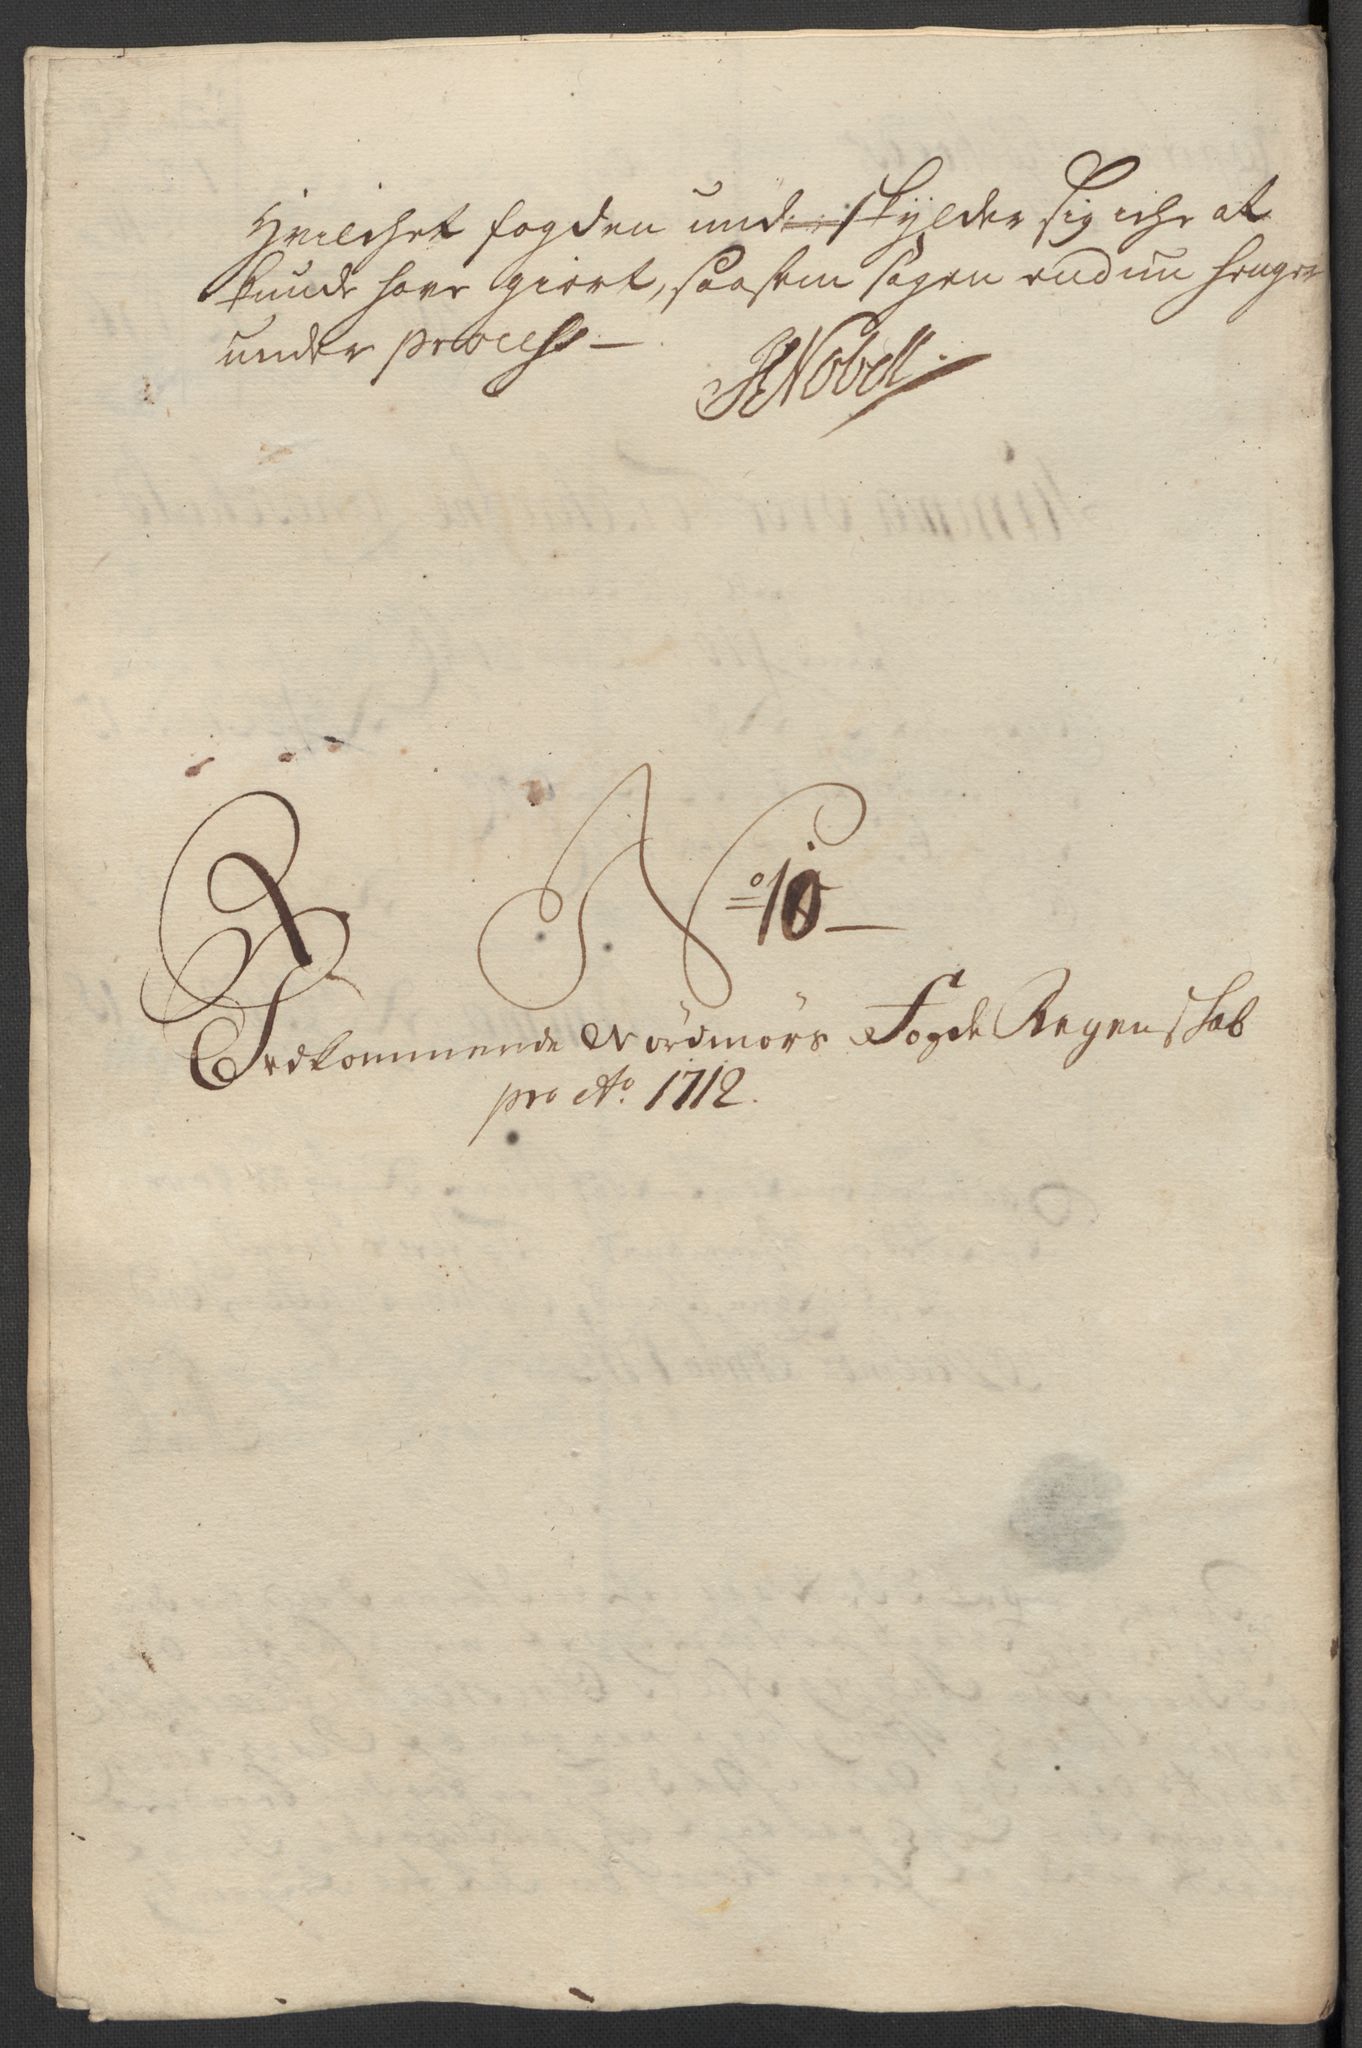 Hvilchet fogden undskylder sig iche at
kunde have giort, saasom sagen endnu henger
under process —
HNobell
No 10 —
Vedkommende Nordmørs Fogde Regenskab
pro Ao. 1712.